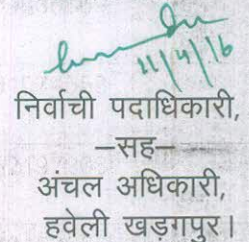 11/4/16
निर्वाची पदाधिकारी,
–सह–
अंचल अधिकारी,
हवेली खड़गपुर।